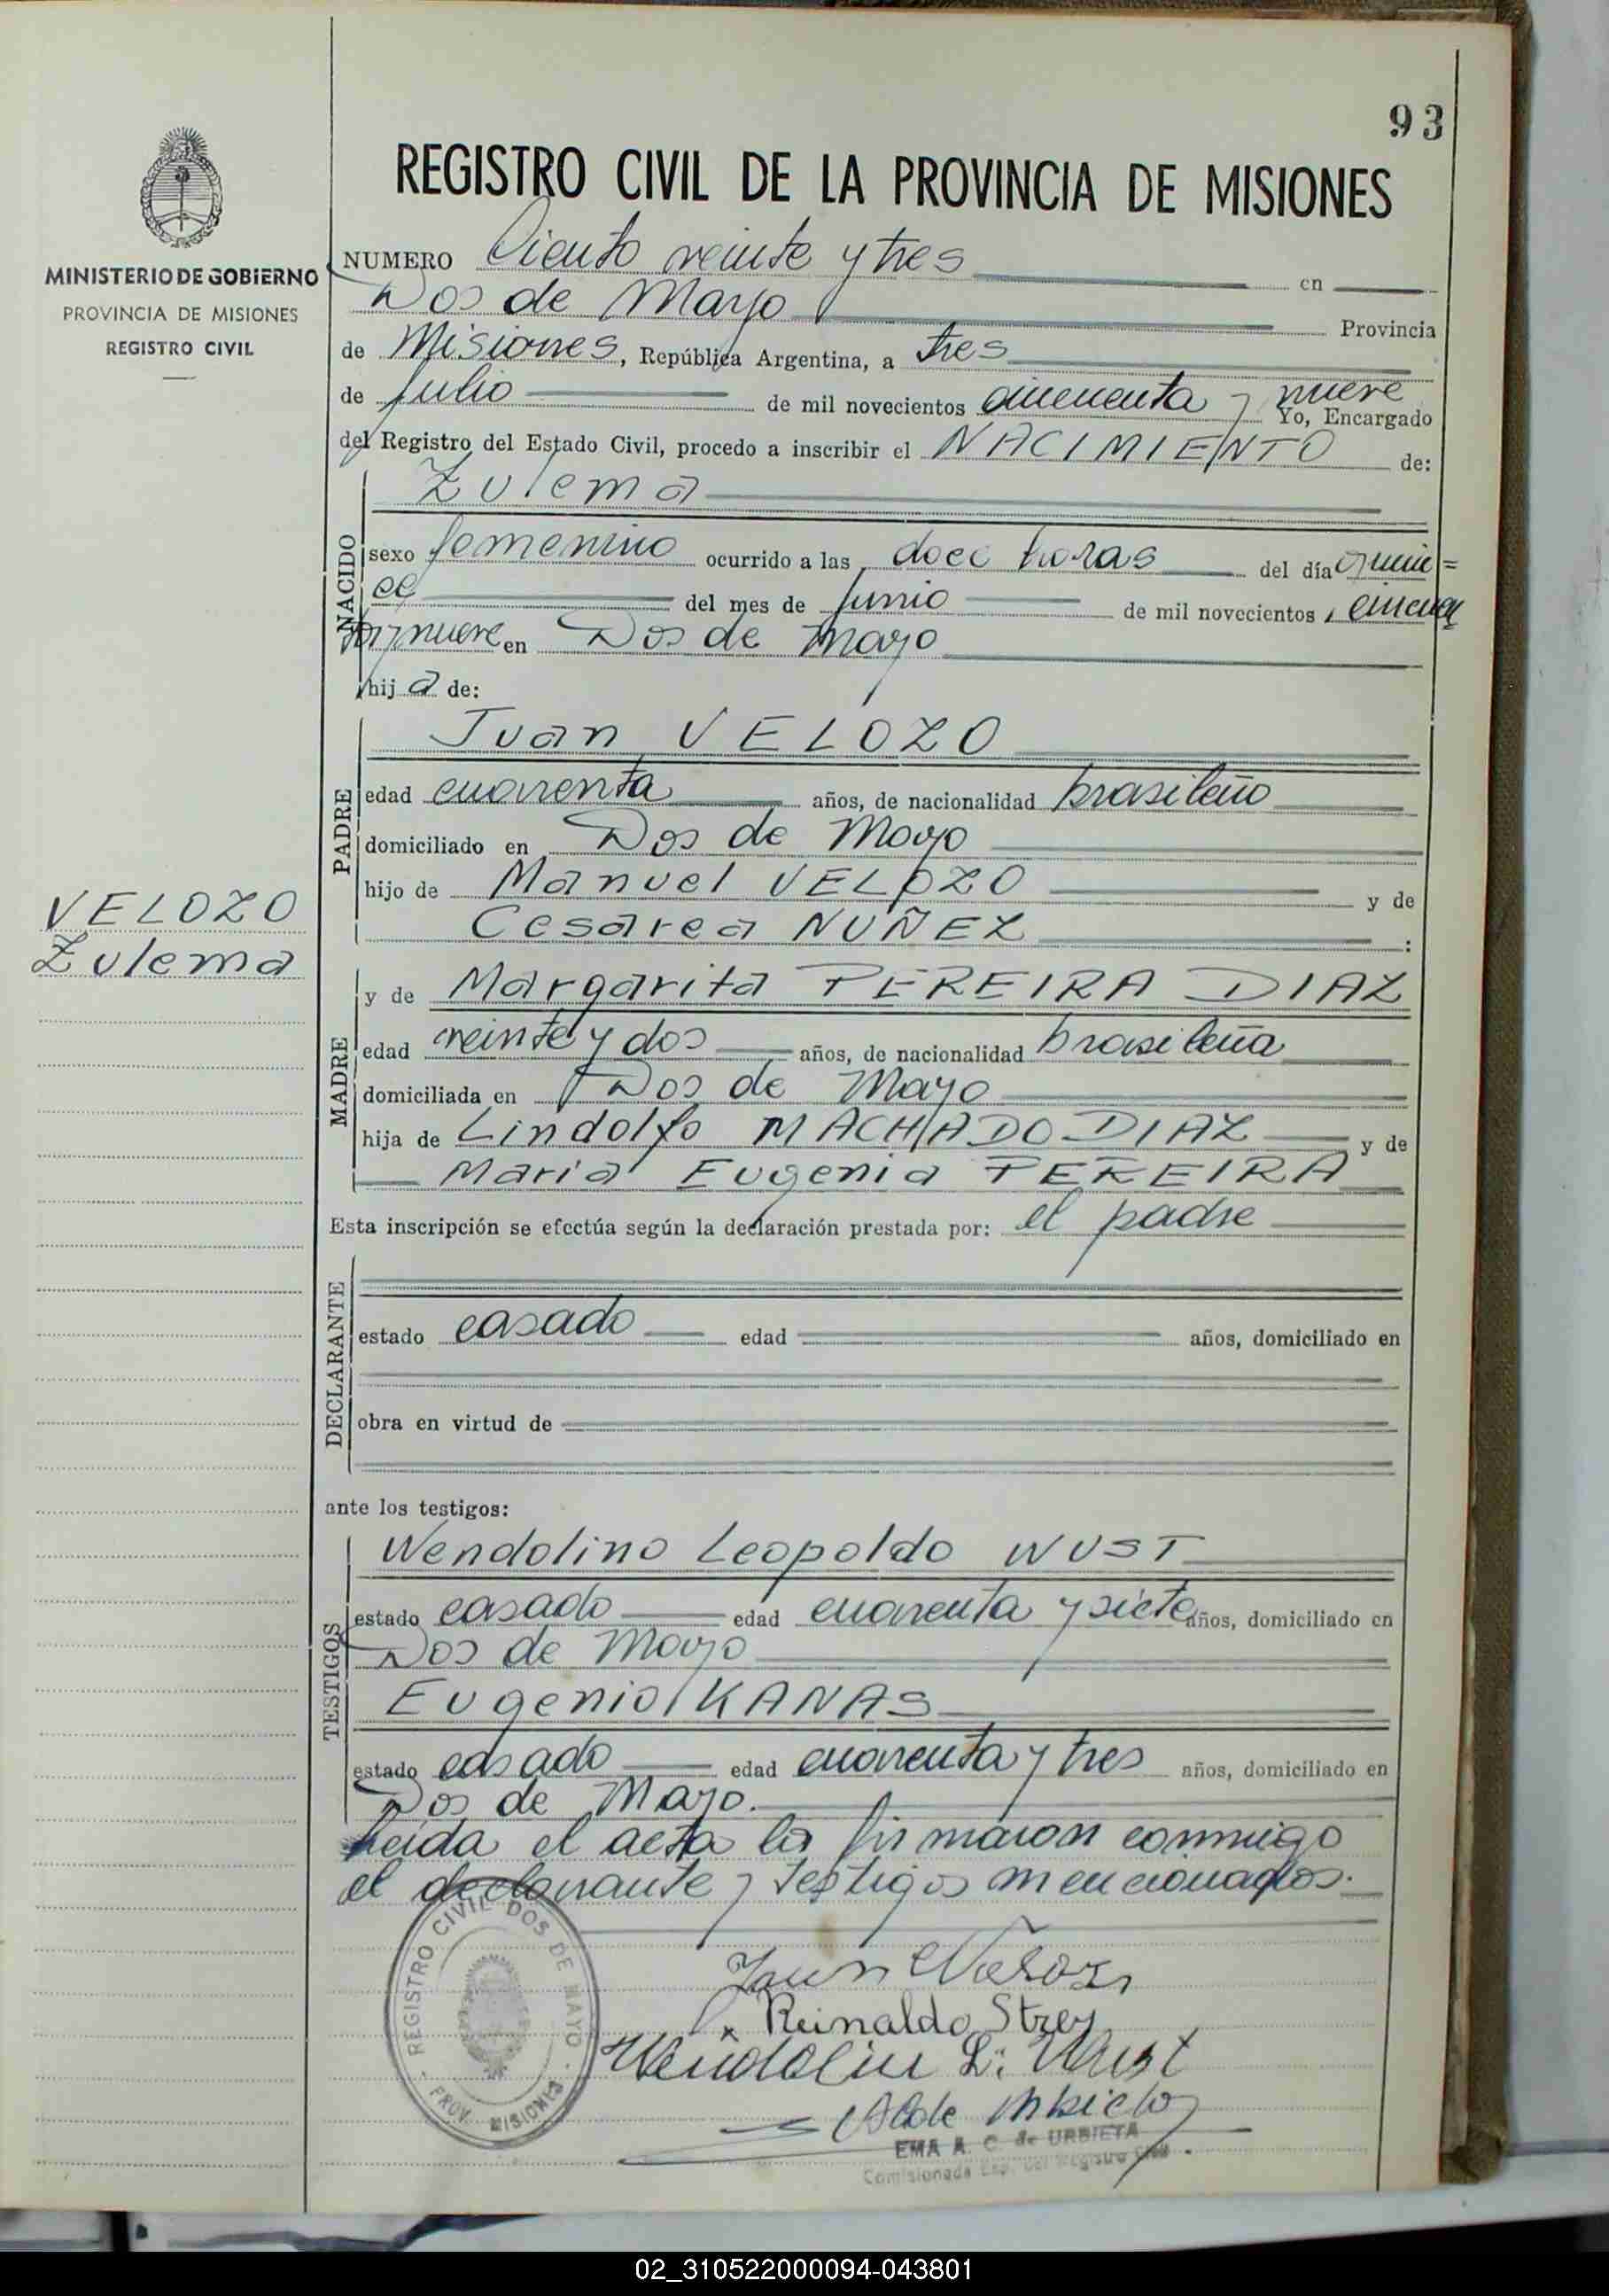 93
REGISTRO CIVIL DE LA PROVINCIA DE MISIONES
MINISTERIO DE GOBIERNO
PROVINCIA DE MISIONES
REGISTRO CIVIL
NUMERO Ciento veinte y tres en
Dos de Mayo Provincia
de Misiones, República Argentina, a tres
de Julio de mil novecientos cincuenta y nueve
Yo, Encargado
del Registro del Estado Civil, procedo a inscribir el NACIMIENTO de:
NACIDO
Zulema
sexo femenino ocurrido a las doce horas del día quin=
ce del mes de junio de mil novecientos cincuen
ta y nueve en Dos de Mayo
hija de:
PADRE
Juan VELOZO
edad cuarenta años, de nacionalidad brasileño
domiciliado en Dos de Mayo
hijo de Manuel VELOZO y de
Cesarea NUÑEZ :
VELOZO
Zulema
MADRE
y de Margarita PEREIRA DIAZ
edad veinte y dos años, de nacionalidad brasileña
domiciliada en Dos de Mayo
hija de Lindolfo MACHADO DIAZ y de
Maria Eugenia PEREIRA
Esta inscripción se efectúa según la declaración prestada por: el padre
DECLARANTE
estado casado edad años, domiciliado en
obra en virtud de
ante los testigos:
TESTIGOS
Wendolino Leopoldo WUST
estado casado edad cuarenta y siete años, domiciliado en
Dos de Mayo
Eugenio KANAS
estado casado edad cuarenta y tres años, domiciliado en
Dos de Mayo.
Leida el acta la firmaron conmigo
el declarante y testigos mencionados.
REGISTRO CIVIL DOS DE MAYO
PROV. MISIONES
Juan
Reinaldo Strey
Wendolin L. Wust
EMA A. C. de URBIETA
Comisionada Esp. del Registro Civil
02_310522000094-043801